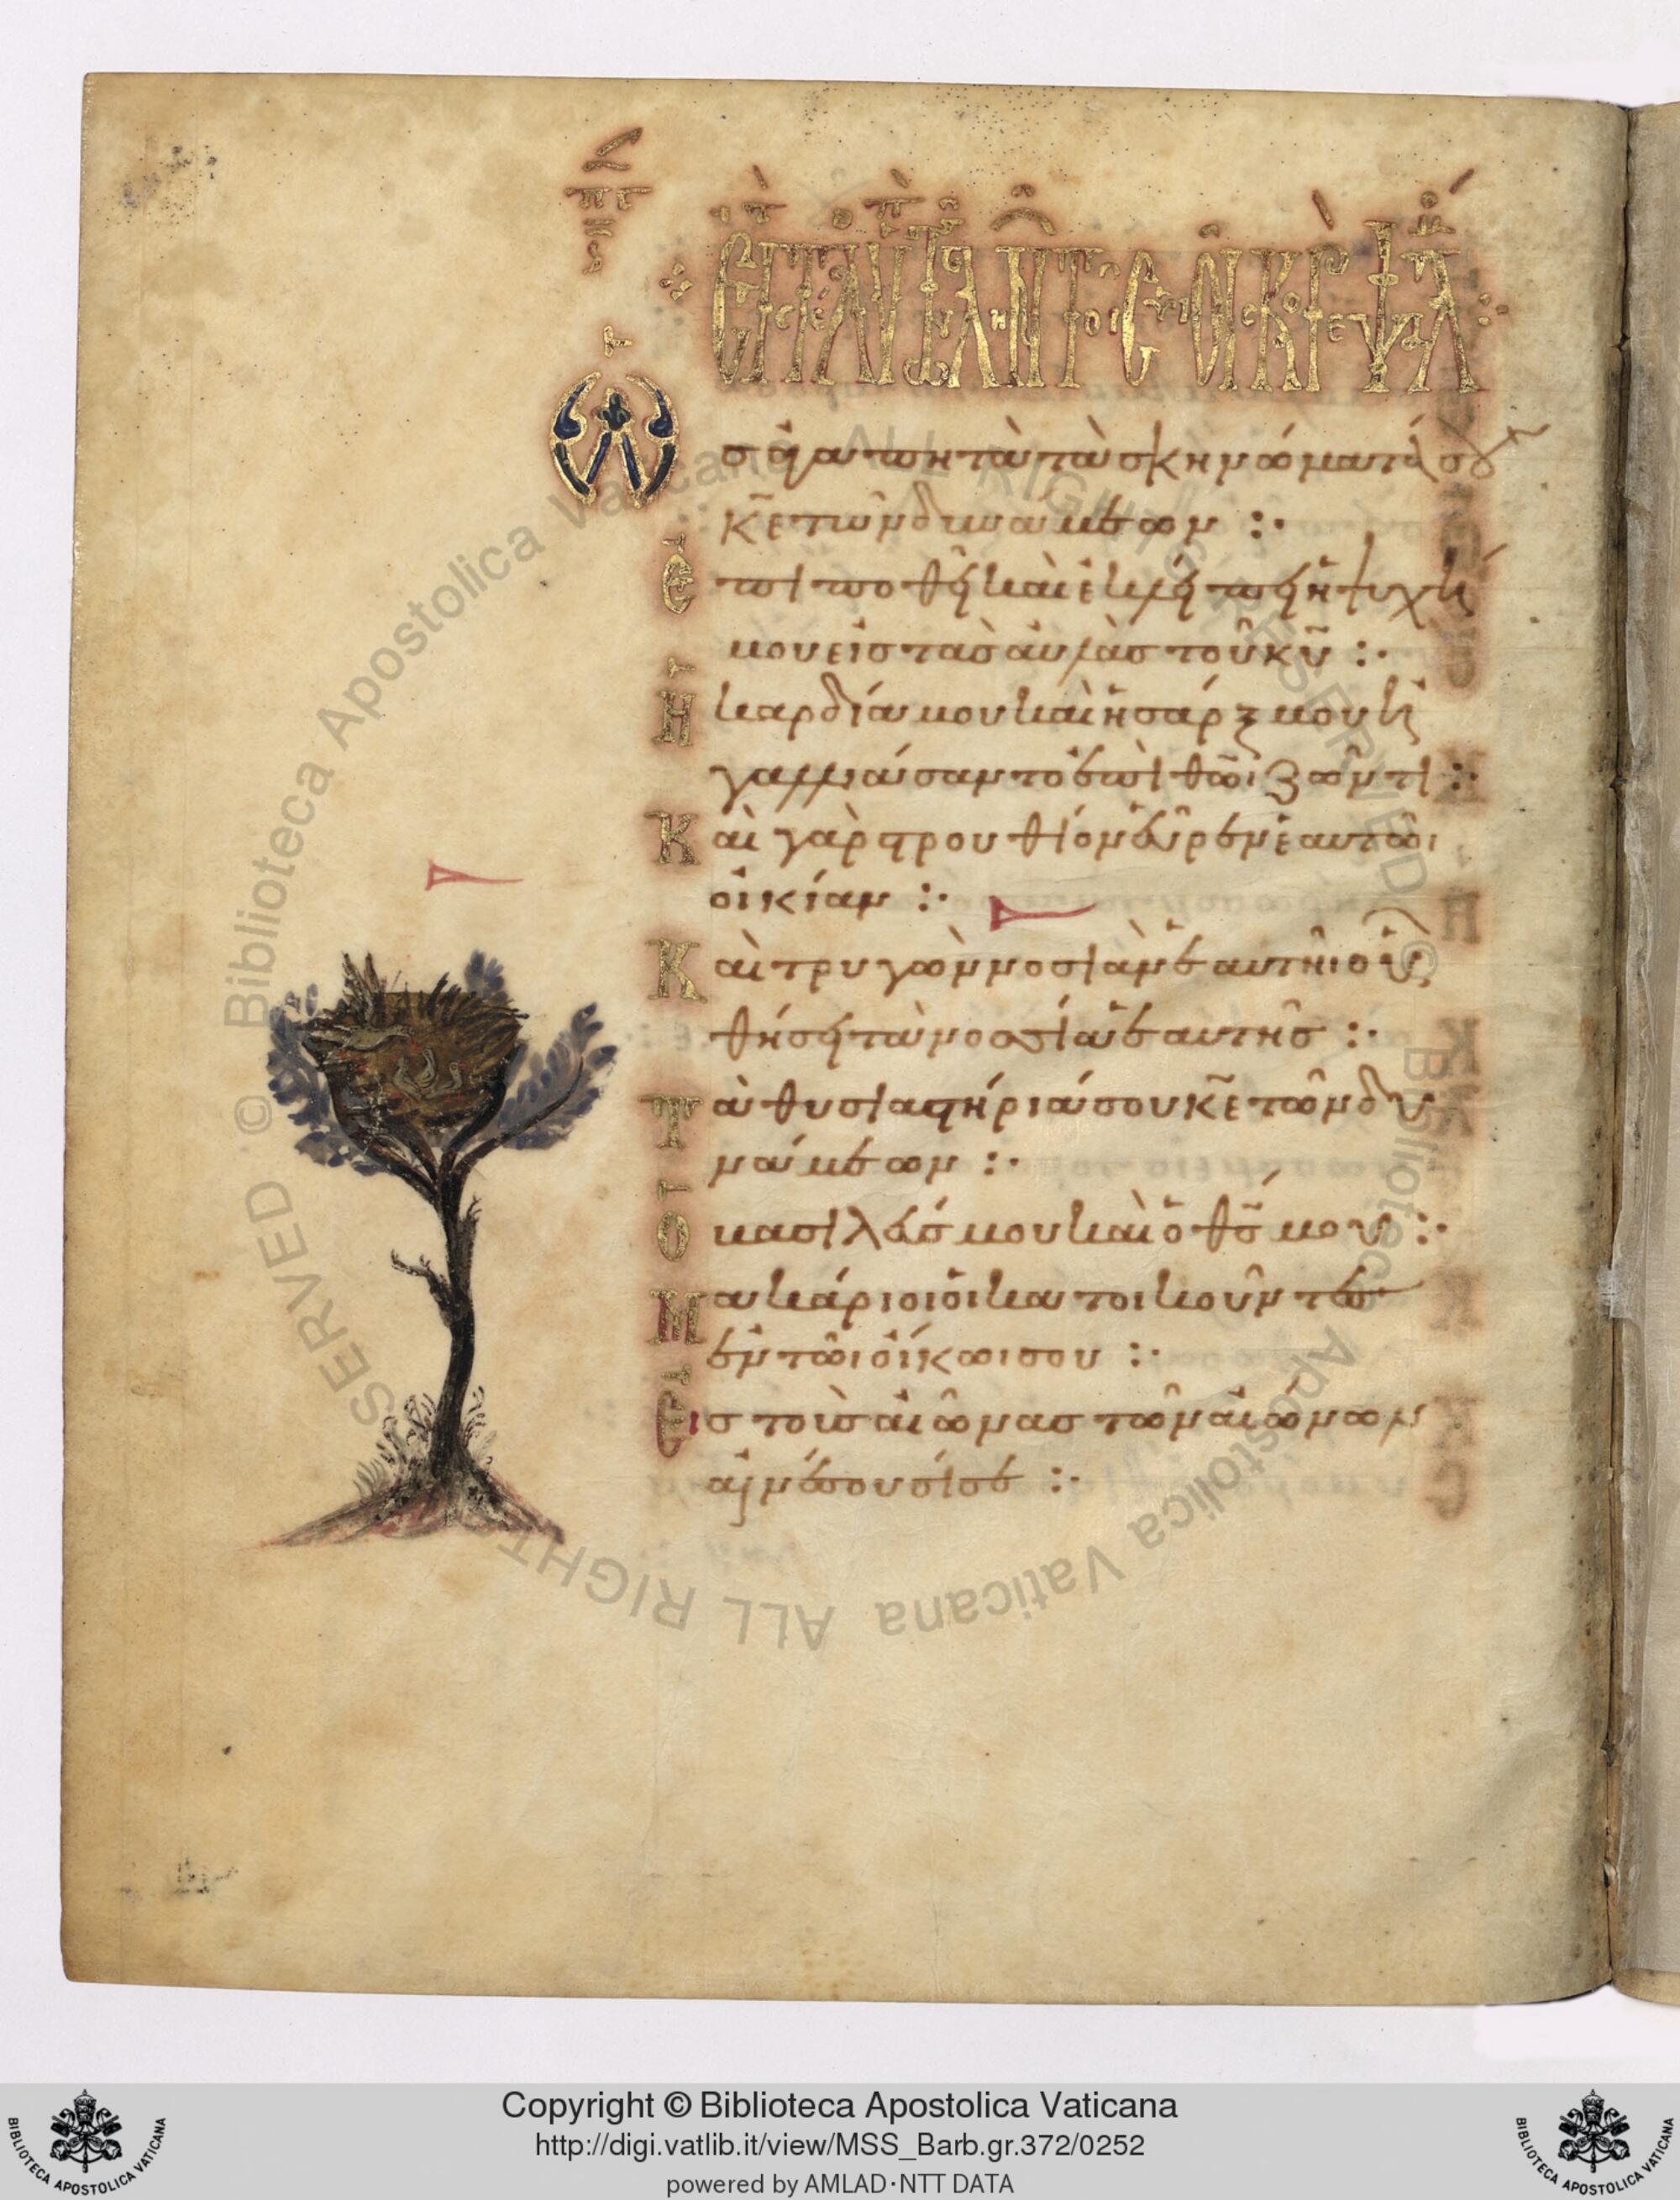 πγ
ὡς ἀγαπητὰ τὰ σκηνώματά σου
κ̅ε̅ τῶν δυνάμεων :·
ἐπιποθεῖ καὶ ἐκλείπει ἡ ψυχή
μου εἰς τὰς αὐλὰς τοῦ κ̅υ̅ :·
Ἡ καρδία μου καὶ ἡ σάρξ μου ἠ
γαλλιάσαντο ἐπὶ θ̅ῶ̅ι ζῶντι :·
Καὶ γὰρ στρουθίον εὗρεν ἑαυτῶι
οἰκίαν :·
Καὶ τρυγὼν νοσιὰν ἑαυτῆι οὗ
θήσει τὰ νοσσία ἑαυτῆς :·
Τὰ θυσιαστήριά σου κ̅ε̅ τῶν δυ
νάμεων :·
Ὁ βασιλεύς μου καὶ ὁ θ̅ς̅ μου :·
Μακάριοι οἱ κατοικοῦντες
ἐν τῶι οἴκωι σου :·
Εἰς τοὺς αἰῶνας τῶν αἰώνων
αἰνέσουσί σε :·
© Biblioteca Apostolica Vaticana ALL RIGHTS RESERVED
© Biblioteca Apostolica Vaticana ALL RIGHTS RESERVED
Copyright © Biblioteca Apostolica Vaticana
http://digi.vatlib.it/view/MSS_Barb.gr.372/0252
powered by AMLAD·NTT DATA
BIBLIOTECA APOSTOLICA VATICANA
BIBLIOTECA APOSTOLICA VATICANA